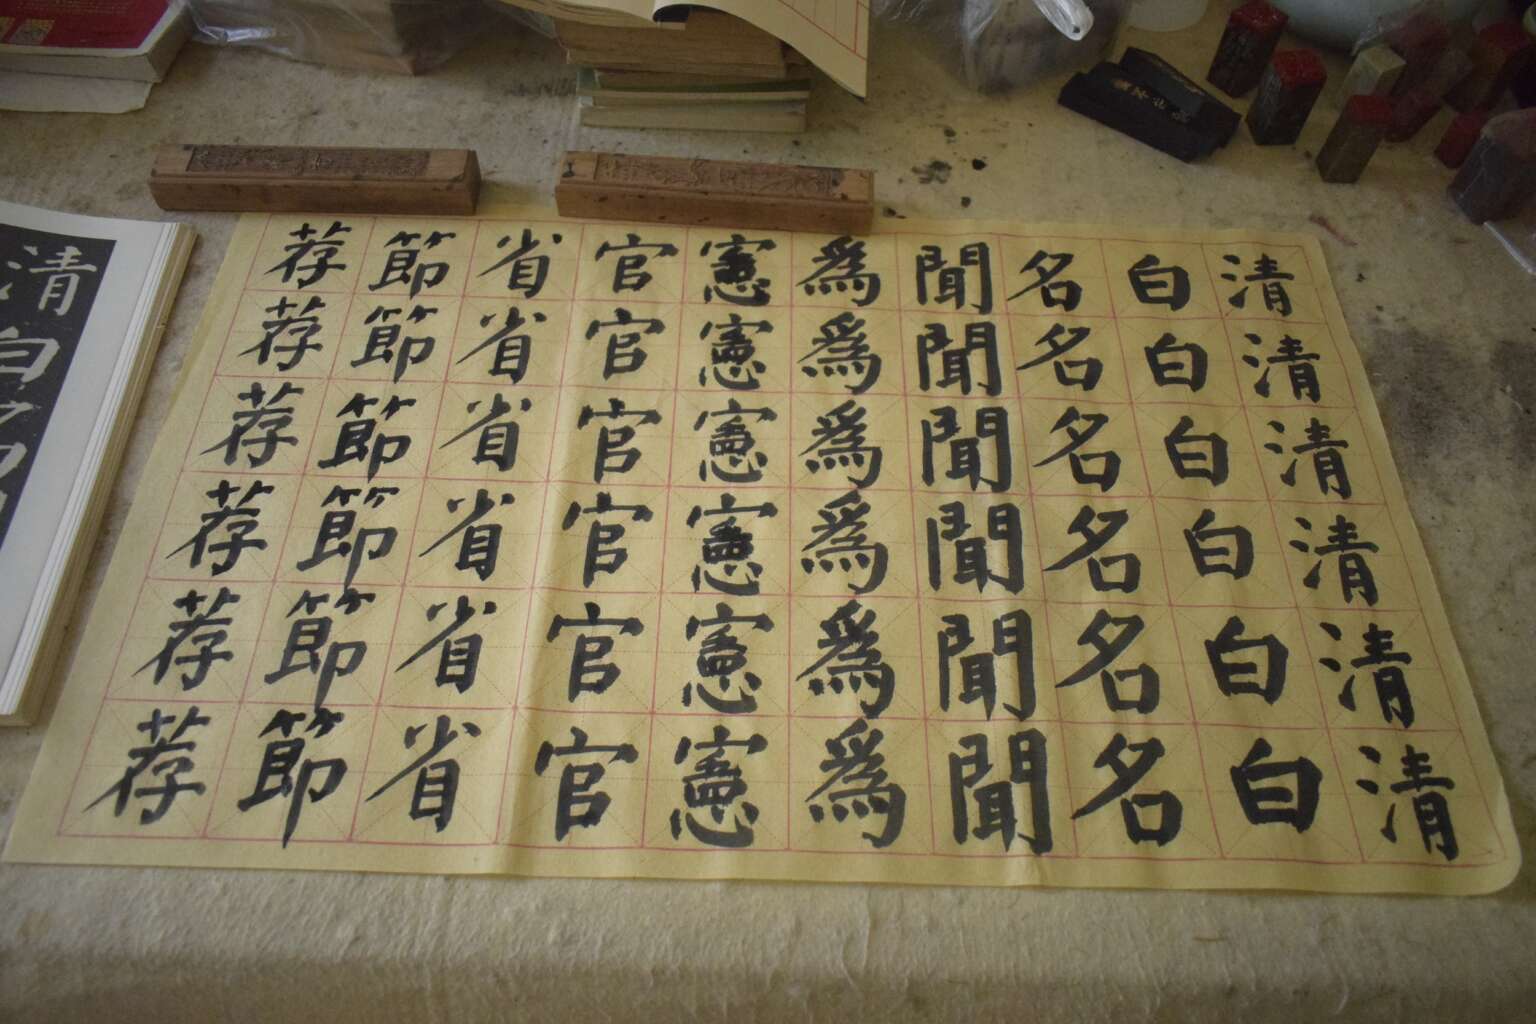 清清清清清清
白白白白白白
名名名名名名
聞聞聞聞聞聞
爲爲爲爲爲爲
憲憲憲憲憲憲
官官官官官官
省省省省省省
節節節節節節
荐荐荐荐荐荐
清白名